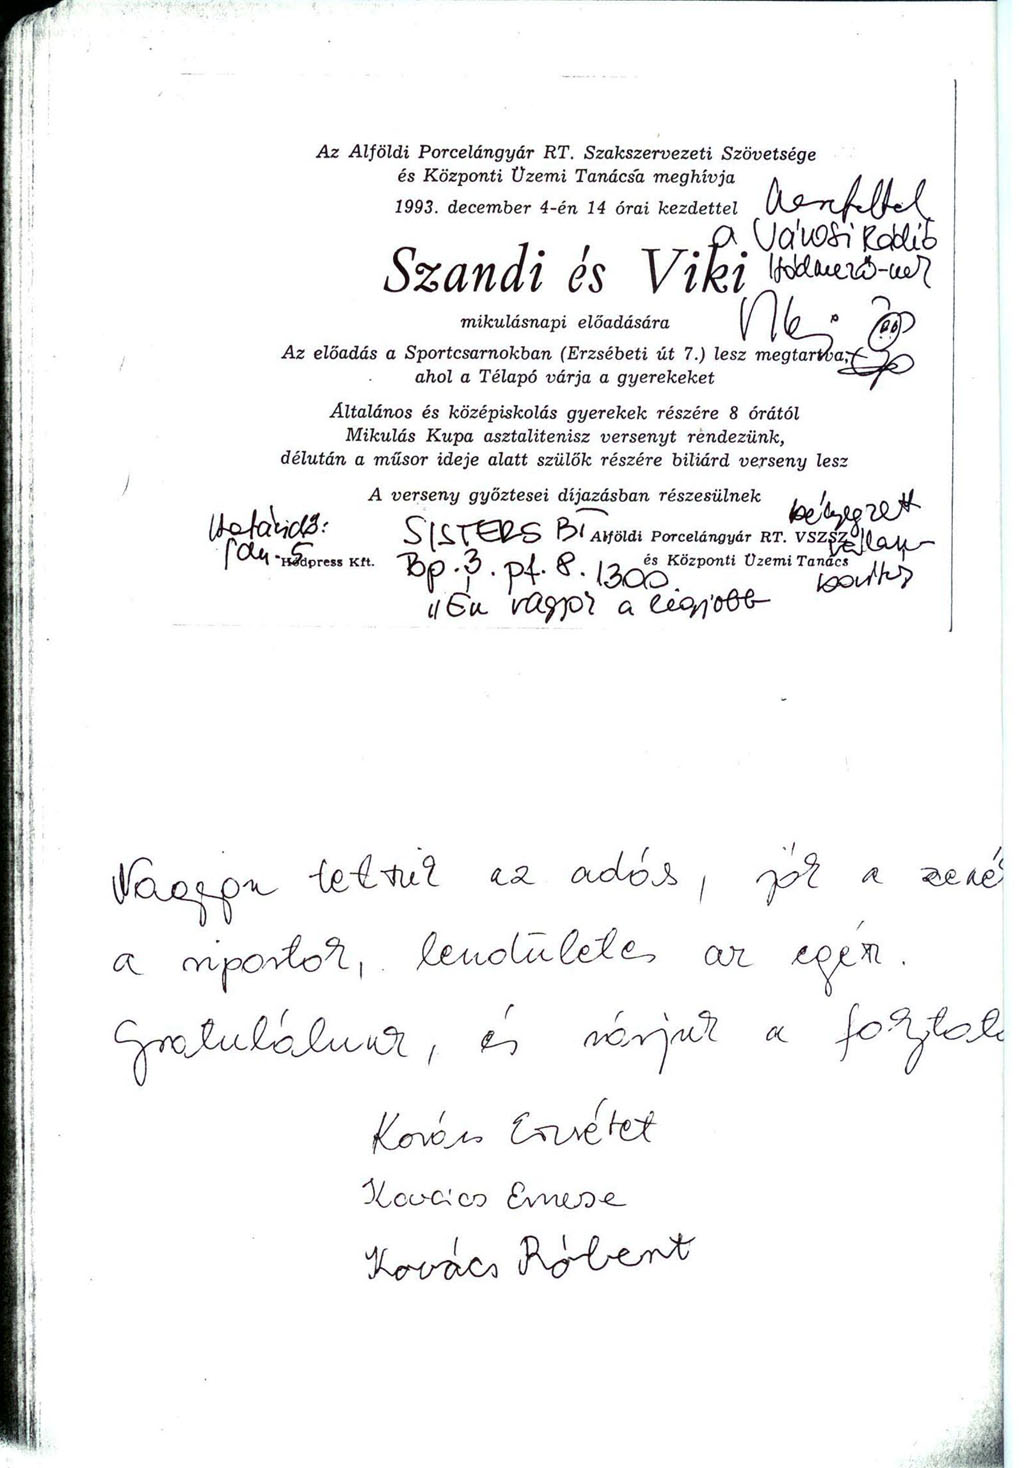 Az Alföldi Porcelángyár RT. Szakszervezeti Szövetsége
és Központi Üzemi Tanácsa meghívja
1993. december 4-én 14 órai kezdettel
Szeretettel
a Városi Rádió
Szandi és Viki
mikulásnapi előadására
Az előadás a Sportcsarnokban (Erzsébeti út 7.) lesz megtartva,
ahol a Télapó várja a gyerekeket
Általános és középiskolás gyerekek részére 8 órától
Mikulás Kupa asztalitenisz versenyt rendezünk,
délután a műsor ideje alatt szülők részére biliárd verseny lesz
A verseny győztesei díjazásban részesülnek
bélyegzett
válasz
boríték
Határidő:
jan. 5
Hódpress Kft.
Alföldi Porcelángyár RT. VSZSZ
és Központi Üzemi Tanács
SISTERS Bt
Bp. 3. pf. 8. 1300
"Én vagyok a legjobb
Nagyon tetszik az adás, jók a zené
a riportok, lendületes az egész.
Gratulálunk, és várjuk a folytat
Kovács Erzsébet
Kovács Emese
Kovács Róbert